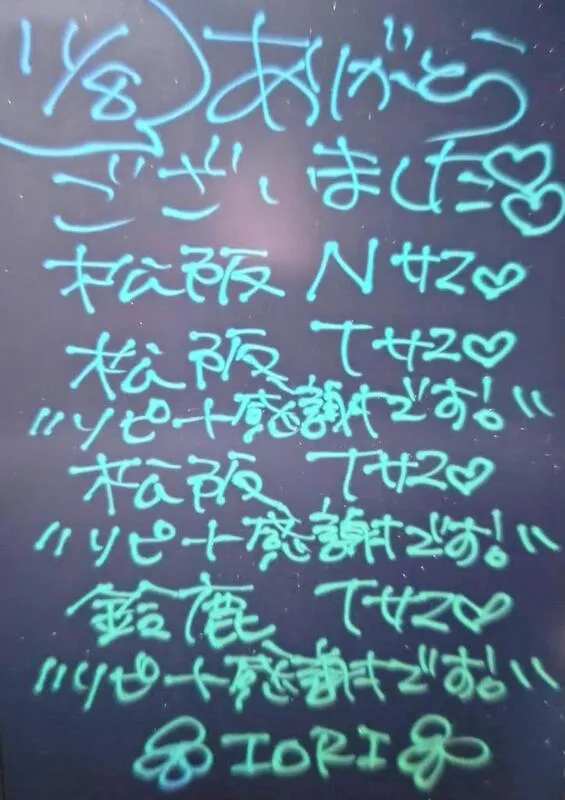 11/8 ありがとう
ございました♡♡
松阪 N サマ♡
松阪 T サマ♡
〃リピート感謝です!〃
松阪 T サマ♡
〃リピート感謝です!〃
鈴鹿 T サマ♡
〃リピート感謝です!〃
IORI